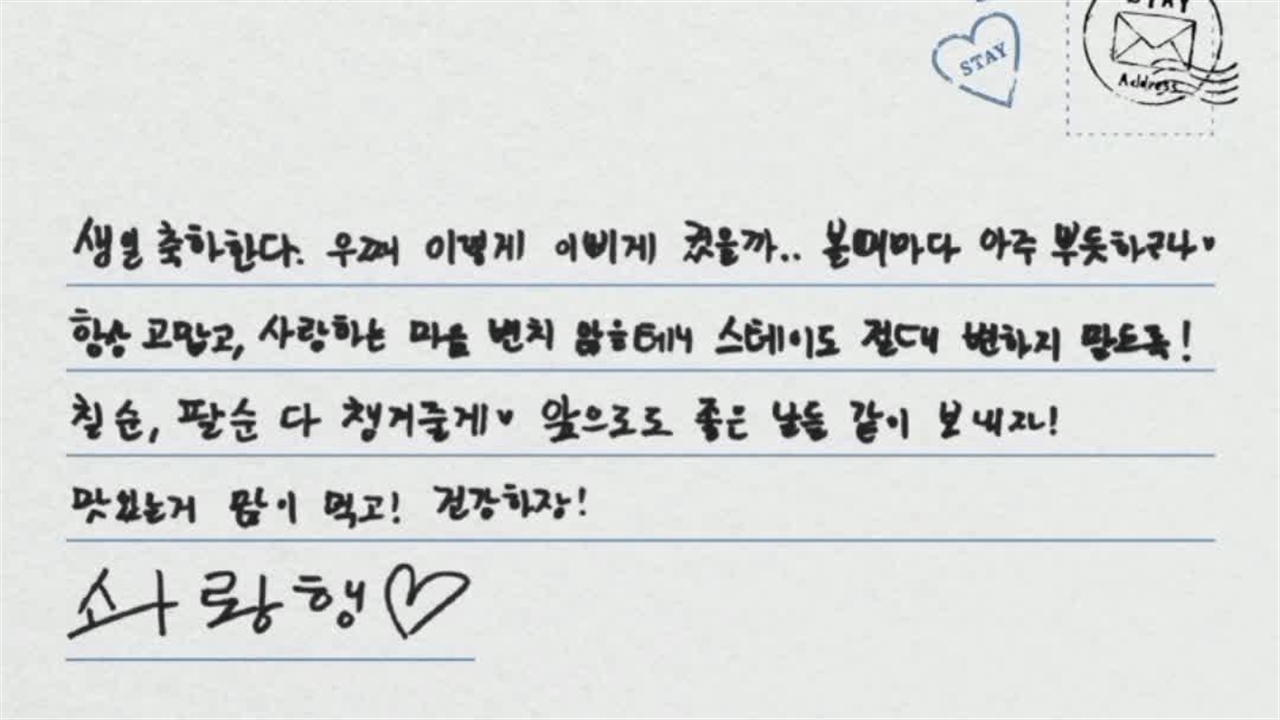 STAY
STAY
Address
생일 축하한다. 우째 이렇게 이쁘게 컸을까.. 볼때마다 아주 뿌듯하구나♥
항상 고맙고, 사랑하는 마음 변치 않을테니 스테이도 절대 변하지 말도록!
칠순, 팔순 다 챙겨줄게♥ 앞으로도 좋은 날들 같이 보내자!
맛있는거 많이 먹고! 건강하장!
사랑행♡